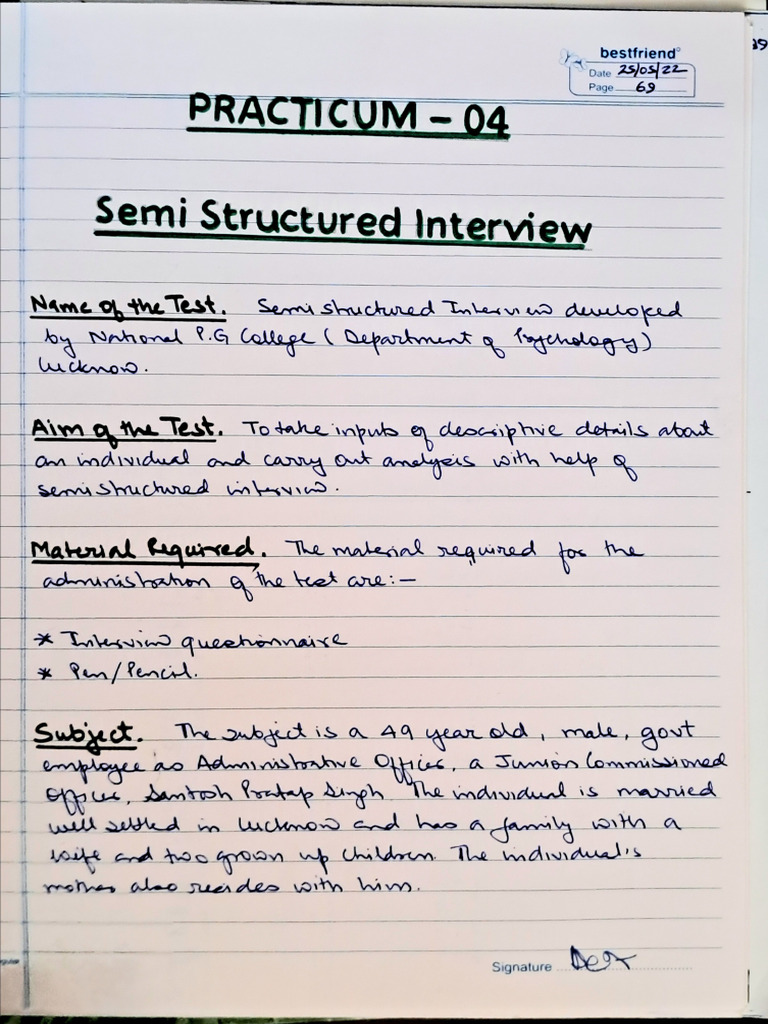 bestfriend
Date 25/05/22
Page 69
PRACTICUM - 04
Semi Structured Interview
Name of the Test. Semi structured Interview developed
by National P.G College ( Department of Psychology)
Lucknow.
Aim of the Test. To take inputs of descriptive details about
an individual and carry out analysis with help of
semi structured interview.
Material Required. The material required for the
administration of the test are:-
* Interview questionnaire
* Pen/Pencil.
Subject. The subject is a 49 year old, male, govt
employee as Administrative Officer, a Junior Commissioned
Officer, Santosh Pratap Singh. The individual is married
well settled in Lucknow and has a family with a
wife and two grown up children. The individual's
mother also resides with him.
Signature